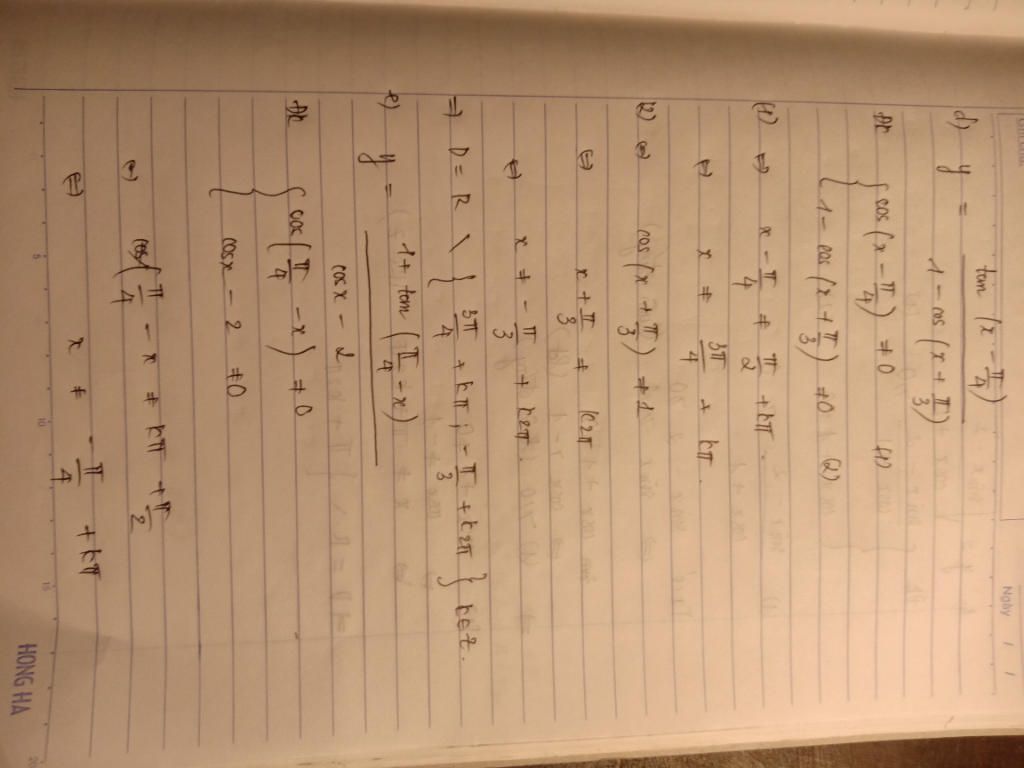 Ngày / /
d) y = tan (x - π/4) / 1 - cos (x + π/3)
ĐK { cos (x - π/4) ≠ 0 (1)
1 - cos (x + π/3) ≠ 0 (2)
(1) ⇔ x - π/4 ≠ π/2 + kπ.
⇔ x ≠ 3π/4 + kπ.
(2) ⇔ cos (x + π/3) ≠ 1
⇔ x + π/3 ≠ k2π
⇔ x ≠ - π/3 + k2π
⇒ D = R \ { 3π/4 + kπ ; - π/3 + k2π } k ∈ Z.
e) y = 1 + tan (π/4 - x) / cosx - 2
ĐK { cos (π/4 - x) ≠ 0
cosx - 2 ≠ 0
⇔ π/4 - x ≠ kπ + π/2
⇔ x ≠ - π/4 + kπ
HONG HA
5 10 15 20